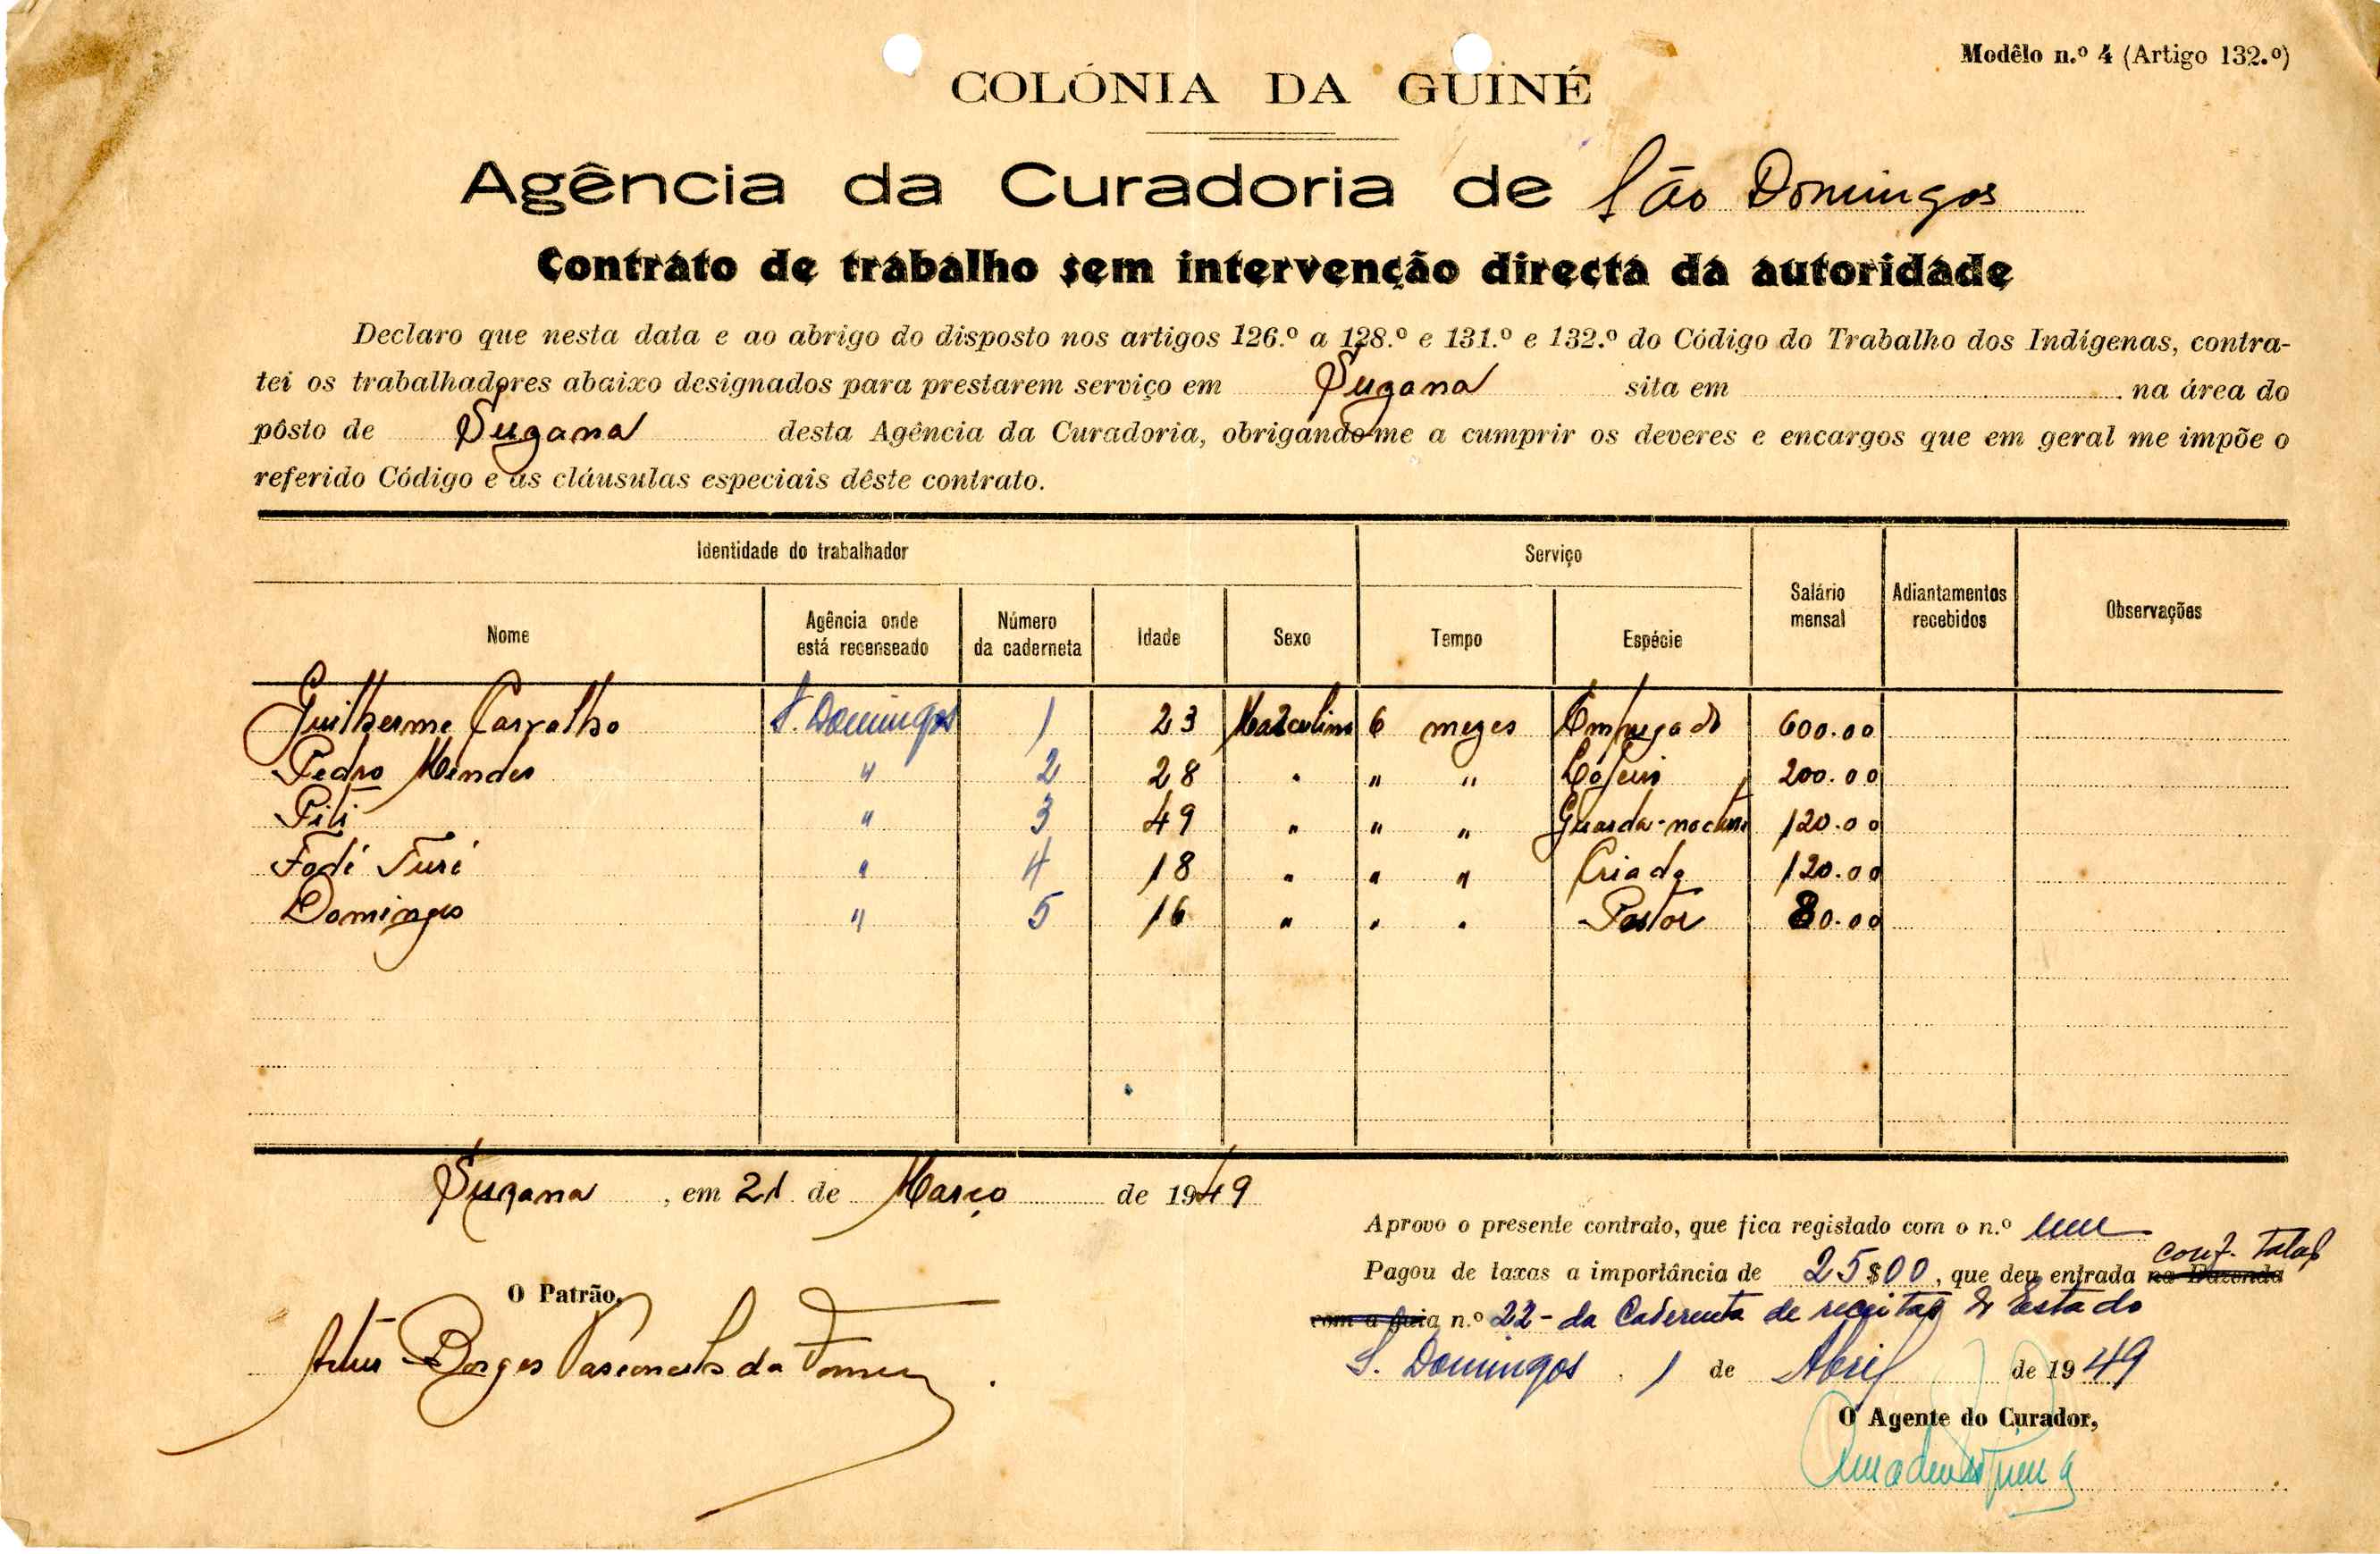 Modêlo n.º 4 (Artigo 132.º)
COLÓNIA DA GUINÉ
Agência da Curadoria de São Domingos
Contrato de trabalho sem intervenção directa da autoridade
Declaro que nesta data e ao abrigo do disposto nos artigos 126.º a 128.º e 131.º e 132.º do Código do Trabalho dos Indígenas, contra-
tei os trabalhadores abaixo designados para prestarem serviço em Sugana sita em na área do
pôsto de Sugana desta Agência da Curadoria, obrigando-me a cumprir os deveres e encargos que em geral me impõe o
referido Código e as cláusulas especiais dêste contrato.
Identidade do trabalhador Serviço Salário mensal Adiantamentos recebidos Observações
Nome Agência onde está recenseado Número da caderneta Idade Sexo Tempo Espécie
Guilherme Carvalho S. Domingos 1 23 Masculino 6 mezes Empregado 600.00
Pedro Mendes " 2 28 " " " 200.00
Piti " 3 49 " " " Guarda-nocturno 120.00
Fodé Turé " 4 18 " " " Criado 120.00
Domingos " 5 16 " " " Pastor 80.00
Sugana, em 21 de Março de 1949
Aprovo o presente contrato, que fica registado com o n.º um
conf. talão
Pagou de taxas a importância de 25$00, que deu entrada na Fazenda
com a guia n.º 22 - da Caderneta de receitas do Estado
S. Domingos, 1 de Abril de 1949
O Patrão,
Artur Borges Vasconcelos da
O Agente do Curador,